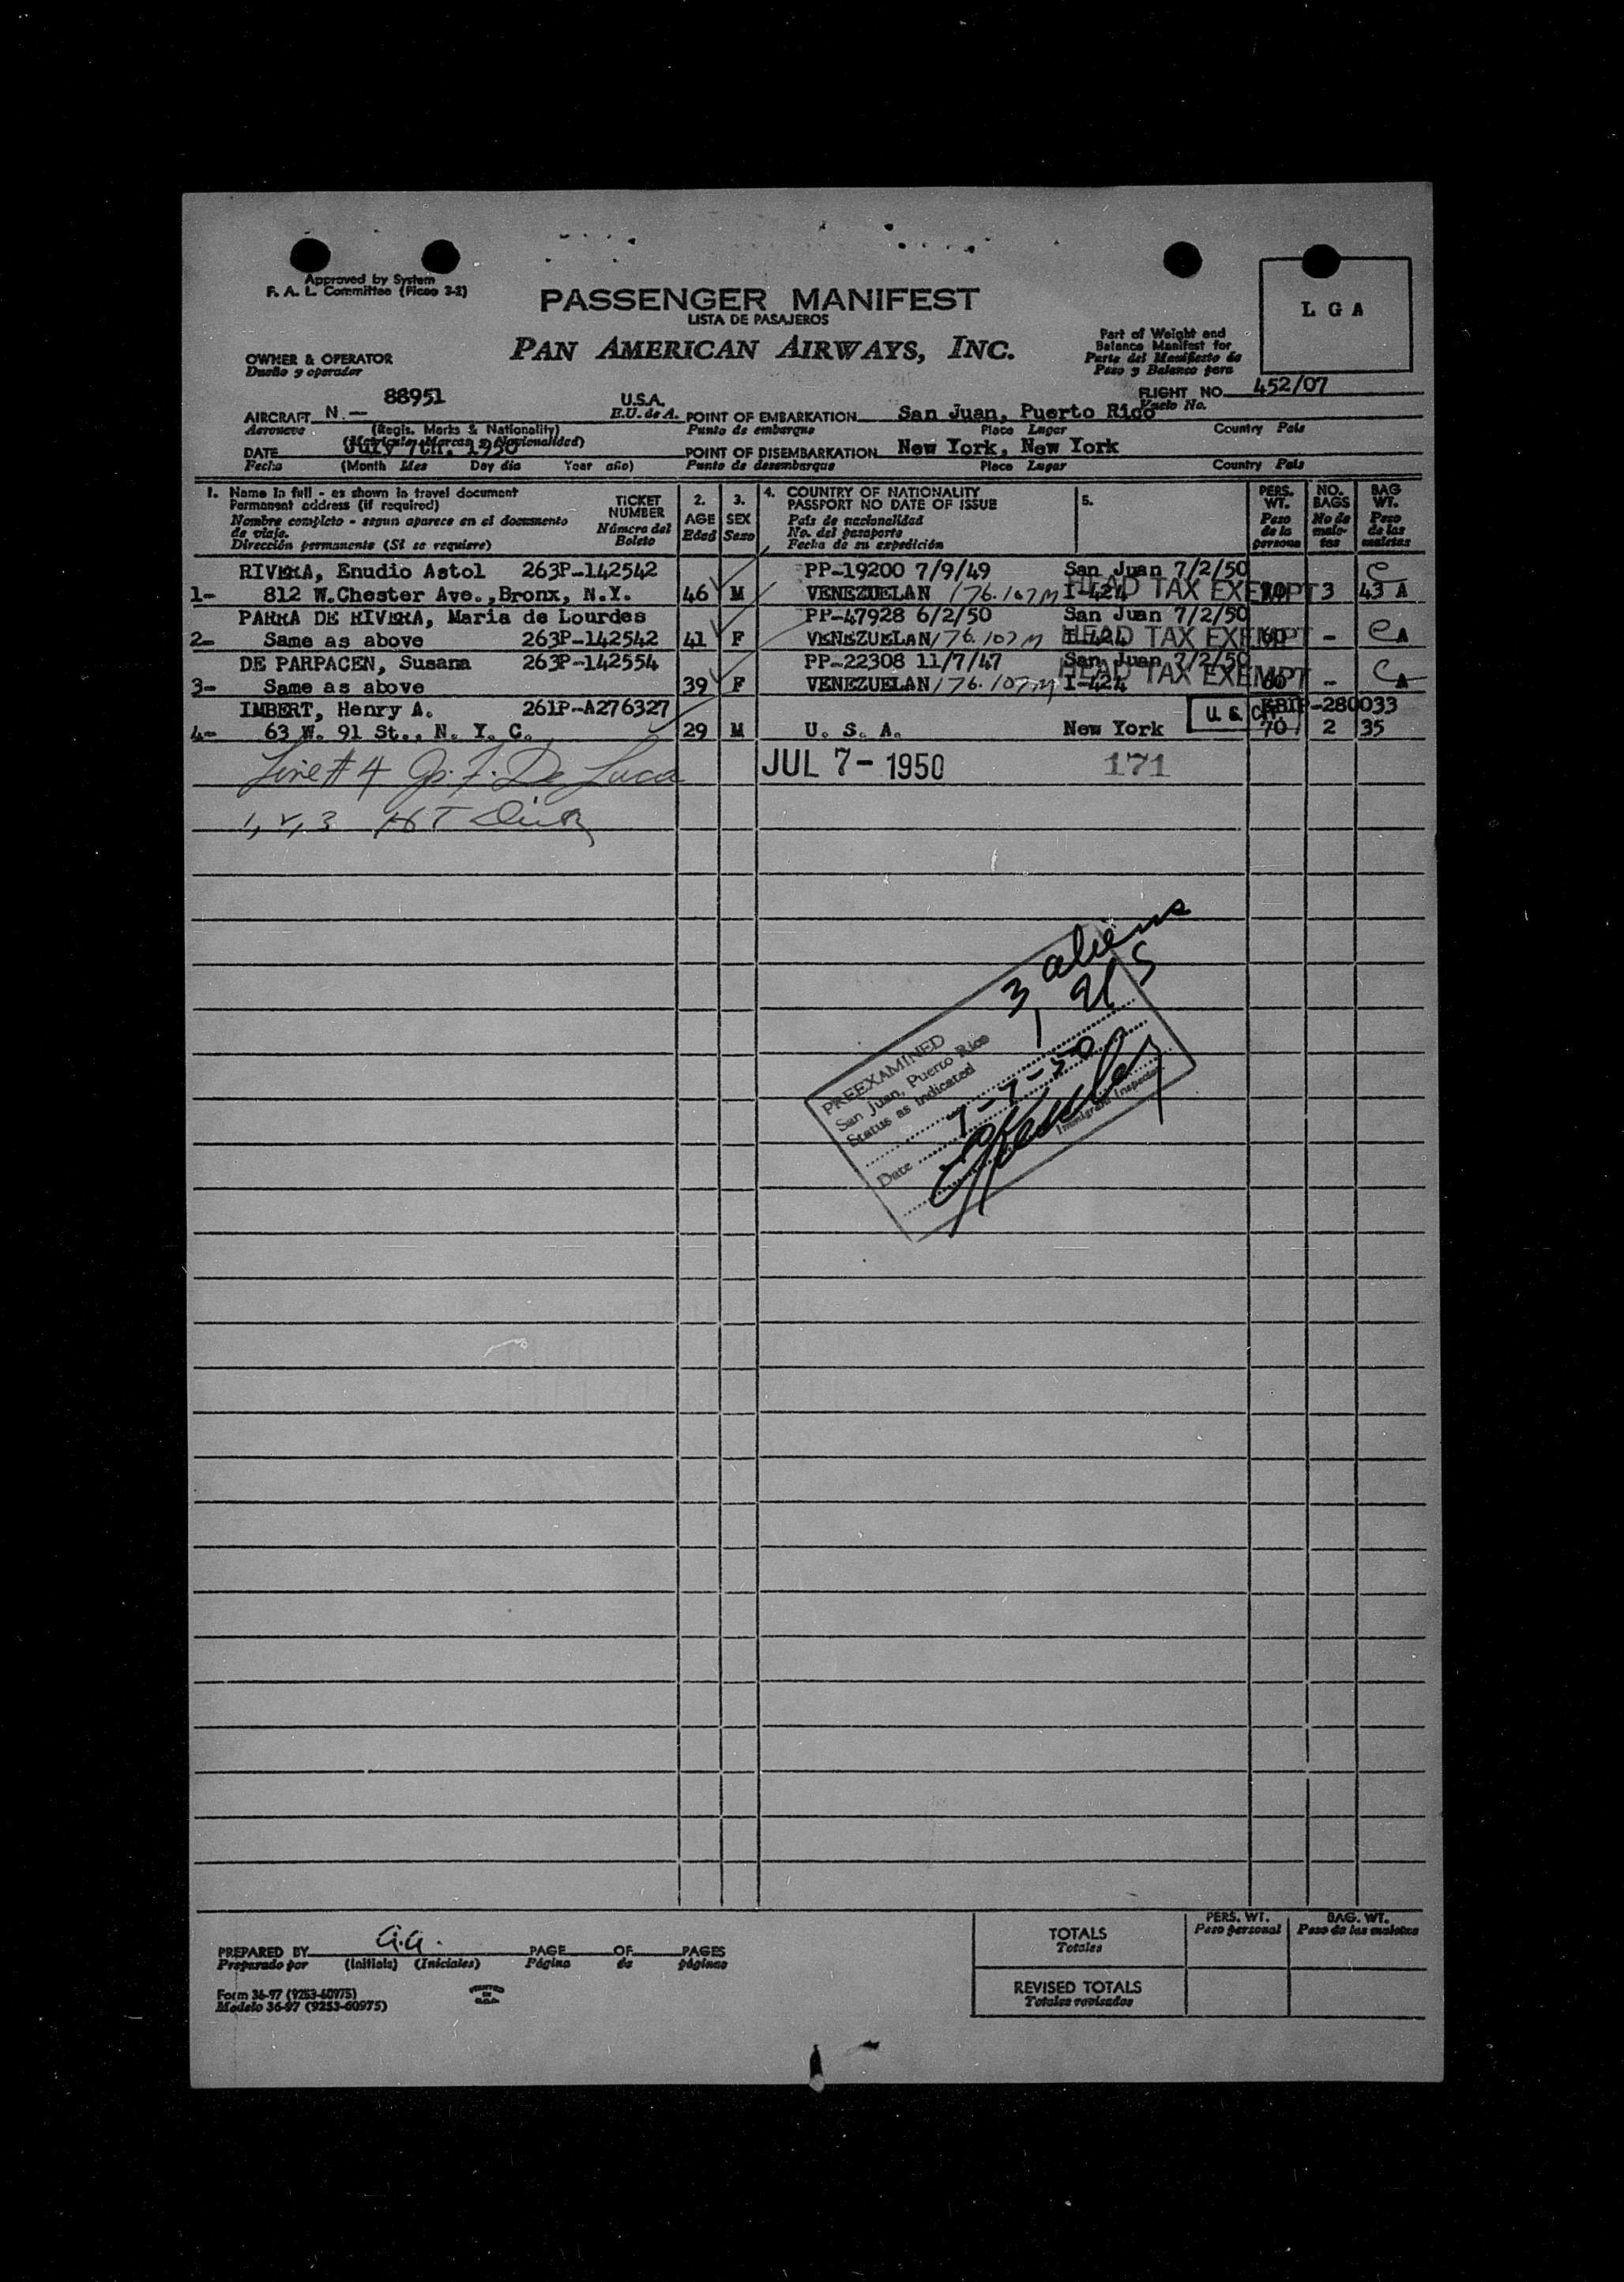 Approved by System
F. A. L. Committee (Picao 3-2)
PASSENGER MANIFEST
LISTA DE PASAJEROS
PAN AMERICAN AIRWAYS, INC.
L G A
Part of Weight and
Balance Manifest for
Parte del Manifiesto de
Peso y Balance para
OWNER & OPERATOR
Dueño y operador
FLIGHT NO. 452/07
Vuelo No.
AIRCRAFT N.— 88951 U.S.A. POINT OF EMBARKATION San Juan, Puerto Rico
Aeronave (Regis. Marks & Nationality) E.U. de A. Punto de embarque Place Lugar Country País
(Matricula, Marcas y Nacionalidad)
DATE July 7th, 1950 POINT OF DISEMBARKATION New York, New York
Fecha (Month Mes Day dia Year año) Punto de desembarque Place Lugar Country País
1. Name in full - as shown in travel document
Permanent address (if required)
Nombre completo - segun aparece en el documento
de viaje.
Dirección permanente (Si se requiere)
TICKET
NUMBER
Número del
Boleto
2.
AGE
Edad
3.
SEX
Sexo
4. COUNTRY OF NATIONALITY
PASSPORT NO DATE OF ISSUE
País de nacionalidad
No. del pasaporte
Fecha de su expedición
5.
PERS.
WT.
Peso
de la
persona
NO.
BAGS
No de
male-
tas
BAG
WT.
Peso
de las
maletas
RIVERA, Enudio Astol 263P-142542 PP-19200 7/9/49 San Juan 7/2/50
1- 812 W.Chester Ave.,Bronx, N.Y. 46 M VENEZUELAN 176.107M I-424 HEAD TAX EXEMPT 3 43 A
PARRA DE RIVERA, Maria de Lourdes PP-47928 6/2/50 San Juan 7/2/50
2- Same as above 263P-142542 41 F VENEZUELAN 176.107M I-424 HEAD TAX EXEMPT 60 - A
DE PARPACEN, Susana 263P-142554 PP-22308 11/7/47 San Juan 7/2/50
3- Same as above 39 F VENEZUELAN 176.107M I-424 HEAD TAX EXEMPT - A
IMBERT, Henry A. 261P-A276327 U. S. CIT. -280033
4- 63 W. 91 St., N. Y. C. 29 M U. S. A. New York 70 2 35
Line # 4 Jp. F. De Luca JUL 7- 1950 171
1, 2, 3
3 aliens
1 US
PREEXAMINED
San Juan, Puerto Rico
Status as indicated
Date 7-7-50
Immigrant Inspector
PREPARED BY a.a. PAGE OF PAGES
Preparado por (Initials) (Iniciales) Página de páginas
Form 36-97 (9253-60975)
Modelo 36-97 (9253-60975)
PRINTED
IN
U.S.A.
TOTALS
Totales
PERS. WT.
Peso personal
BAG. WT.
Peso de las maletas
REVISED TOTALS
Totales revisados